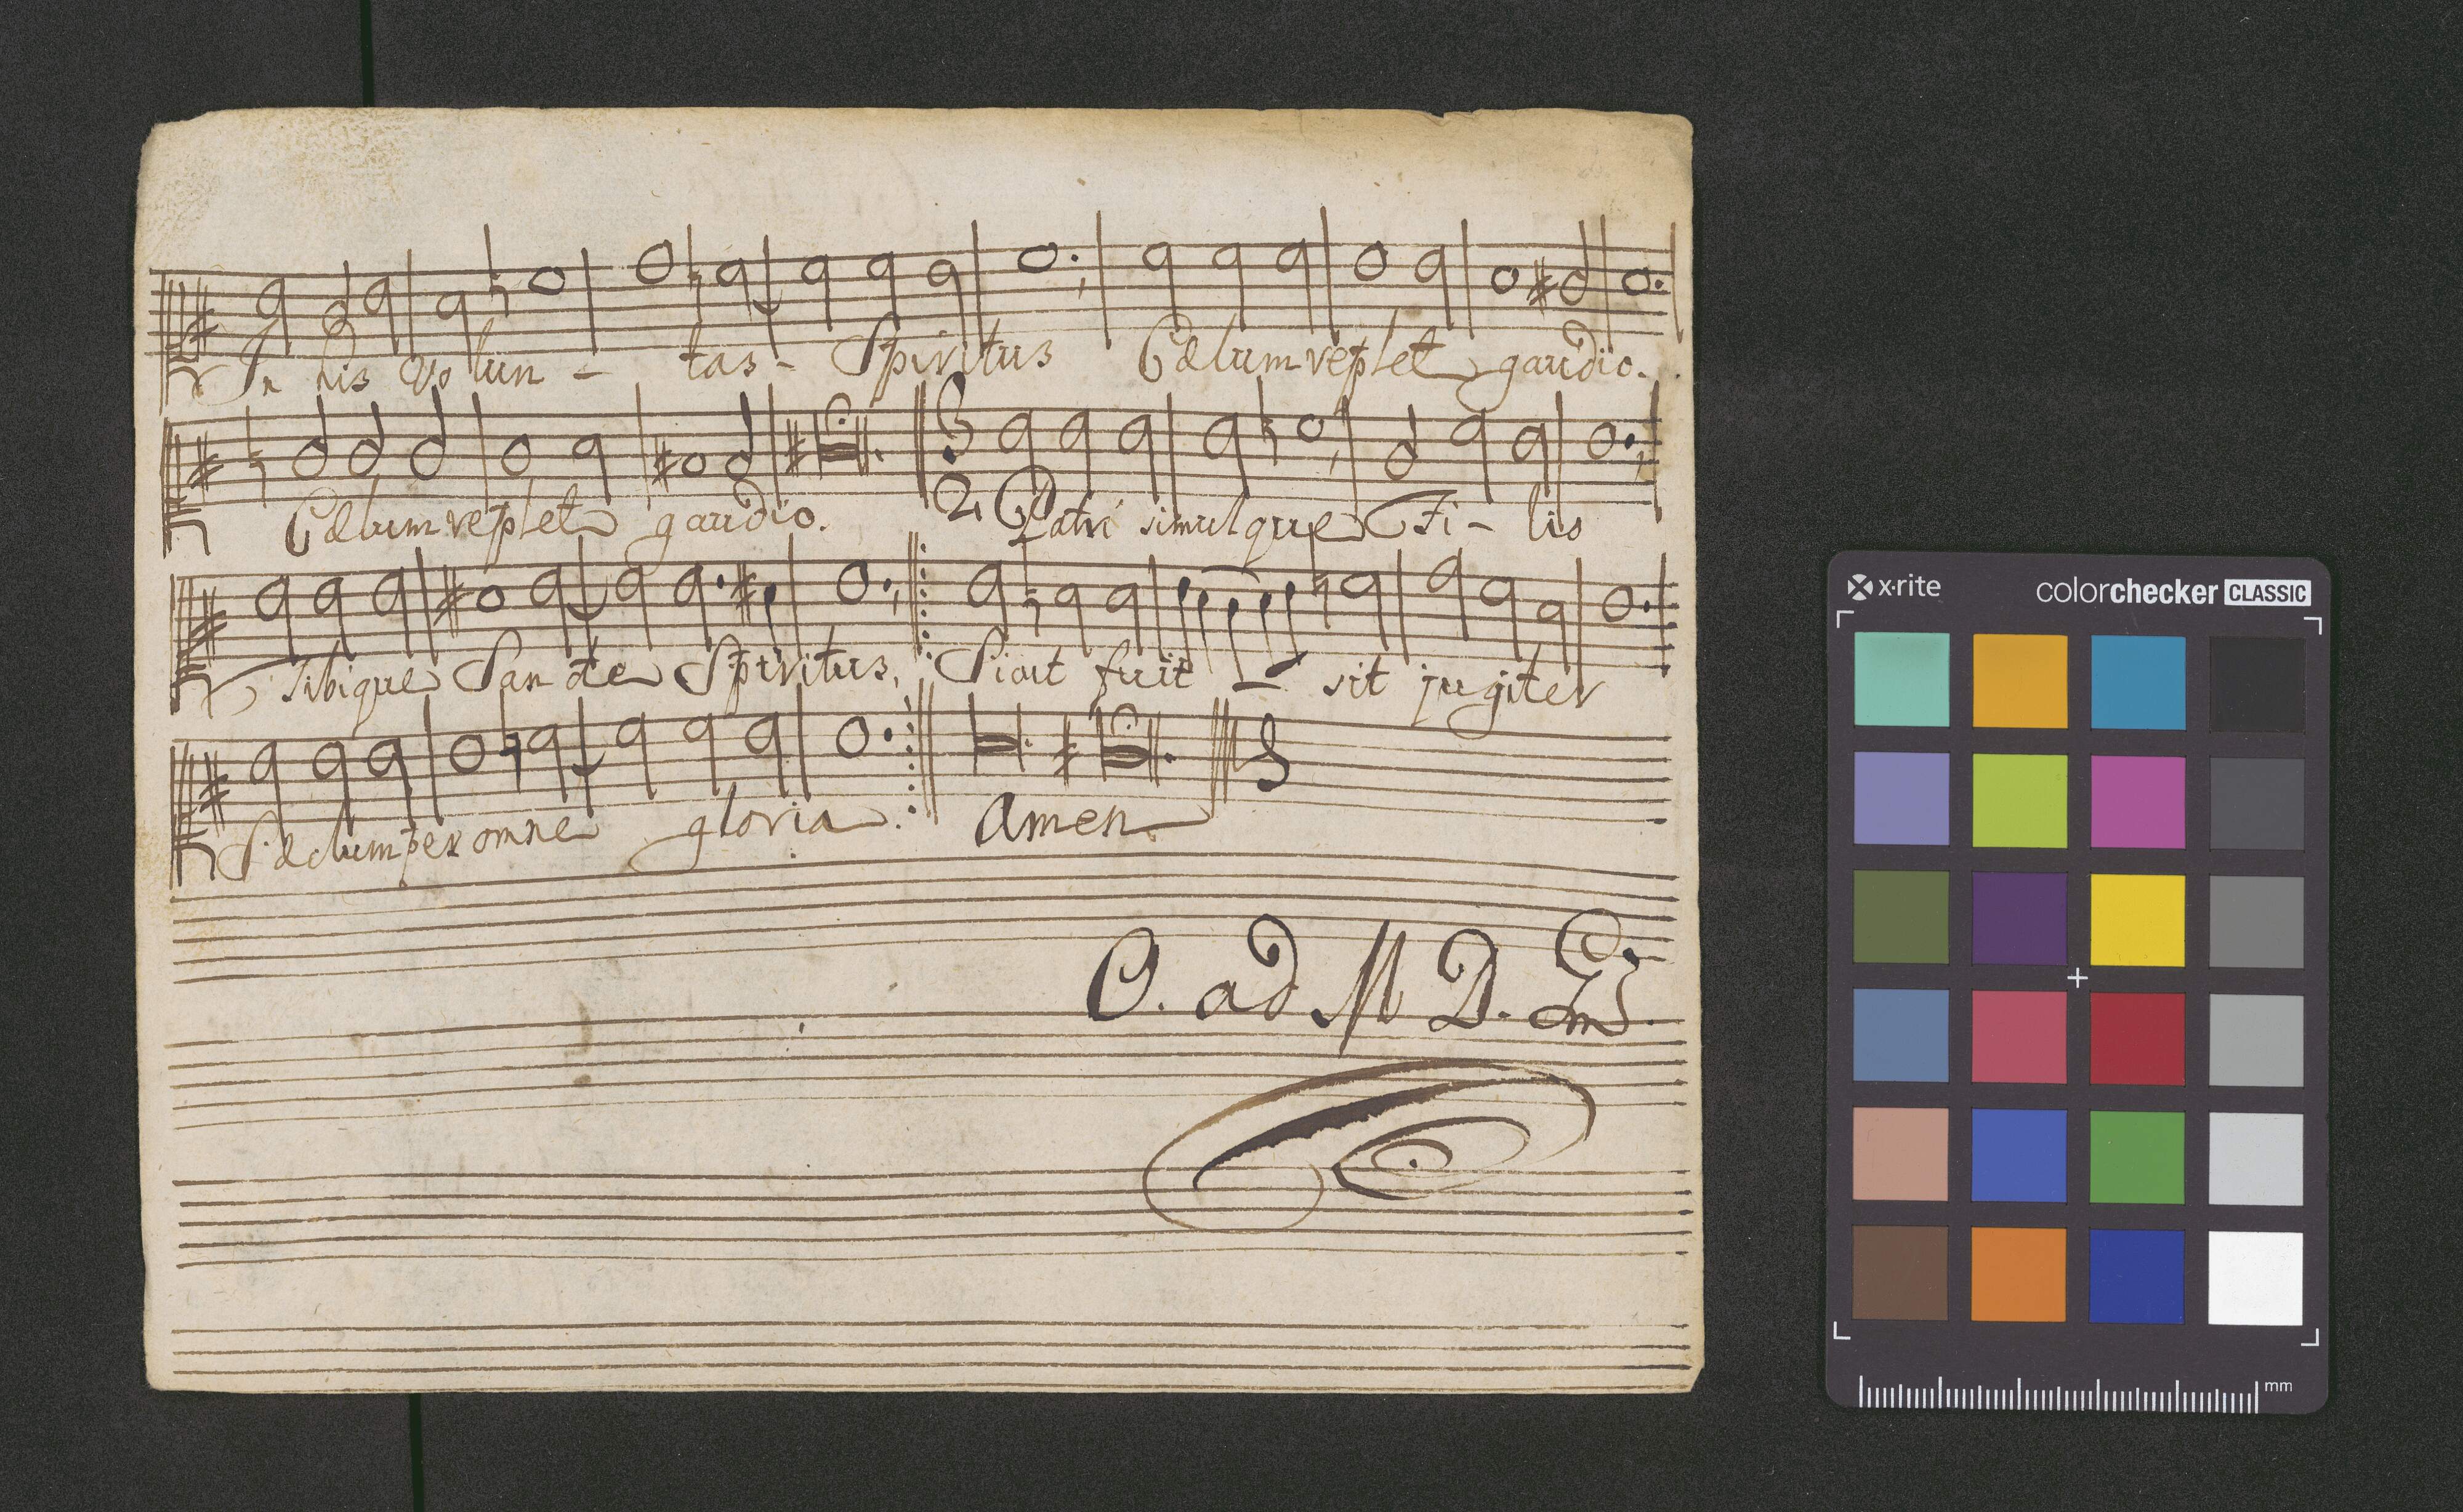 In his volun - tas - Spiritus Cælum replet gaudio.
Cælum replet gaudio. 2. Patri simulque Fi - lio
Tibique Sancte Spiritus, Sicut fuit - sit jugiter
Sæclum per omne gloria. Amen
O. ad M D. G
x·rite colorchecker CLASSIC
mm